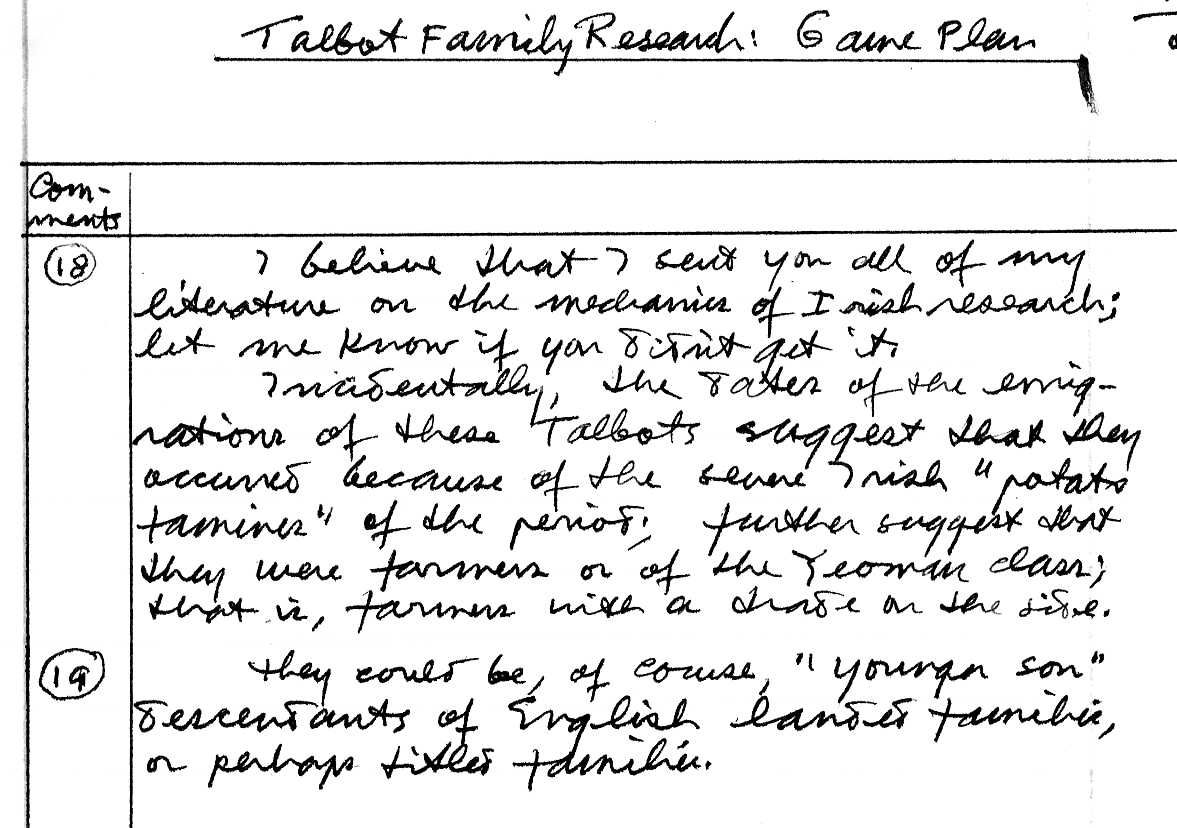 Talbot Family Research: Game Plan
Com-
ments
18
I believe that I sent you all of my
literature on the mechanics of Irish research;
let me know if you didn't get it.
Incidentally, the dates of the emig-
rations of these Talbots suggest that they
occurred because of the severe Irish "potato
famines" of the period; further suggest that
they were farmers or of the Yeoman class;
that is, farmers with a trade on the side.
19
They could be, of course, "younger son"
descendants of English landed families,
or perhaps titled families.